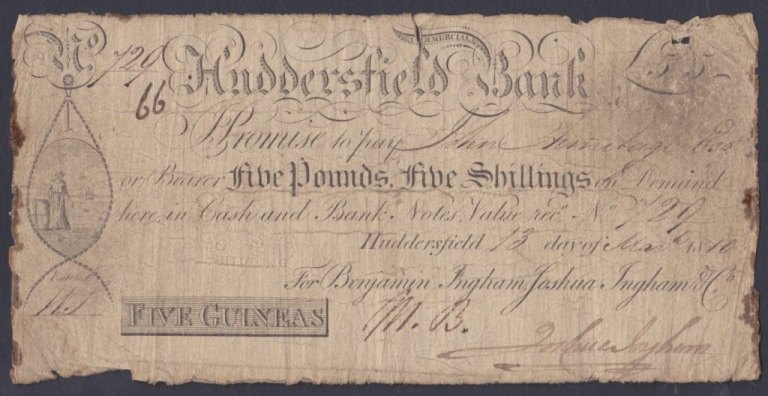 No 729 COMMERCIAL £5 5
Huddersfield Bank
66
I Promise to pay John Armitage Esq
or Bearer Five Pounds, Five Shillings on Demand
here in Cash and Bank Notes, Value recd. No 729
Huddersfield 13 day of 1810
For Benjamin Ingham, Joshua Ingham & Co
FIVE GUINEAS M. B.
Joshua Ingham